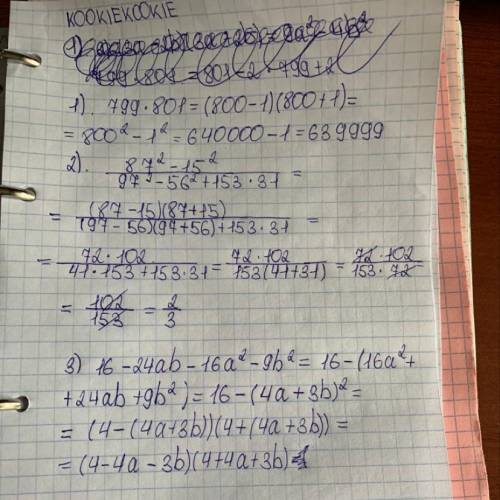 KOOKIEKOOKIE
1). 799·801=(800-1)(800+1)=
=800²-1²=640000-1=639999
2). (87²-15²)/(97²-56²+153·31) =
= ((87-15)(87+15))/((97-56)(97+56)+153·31) =
= (72·102)/(41·153+153·31) = (72·102)/(153(41+31)) = (72·102)/(153·72)
= 102/153 = 2/3
3) 16-24ab-16a²-9b²=16-(16a²+
+24ab+9b²)=16-(4a+3b)²=
=(4-(4a+3b))(4+(4a+3b))=
=(4-4a-3b)(4+4a+3b)